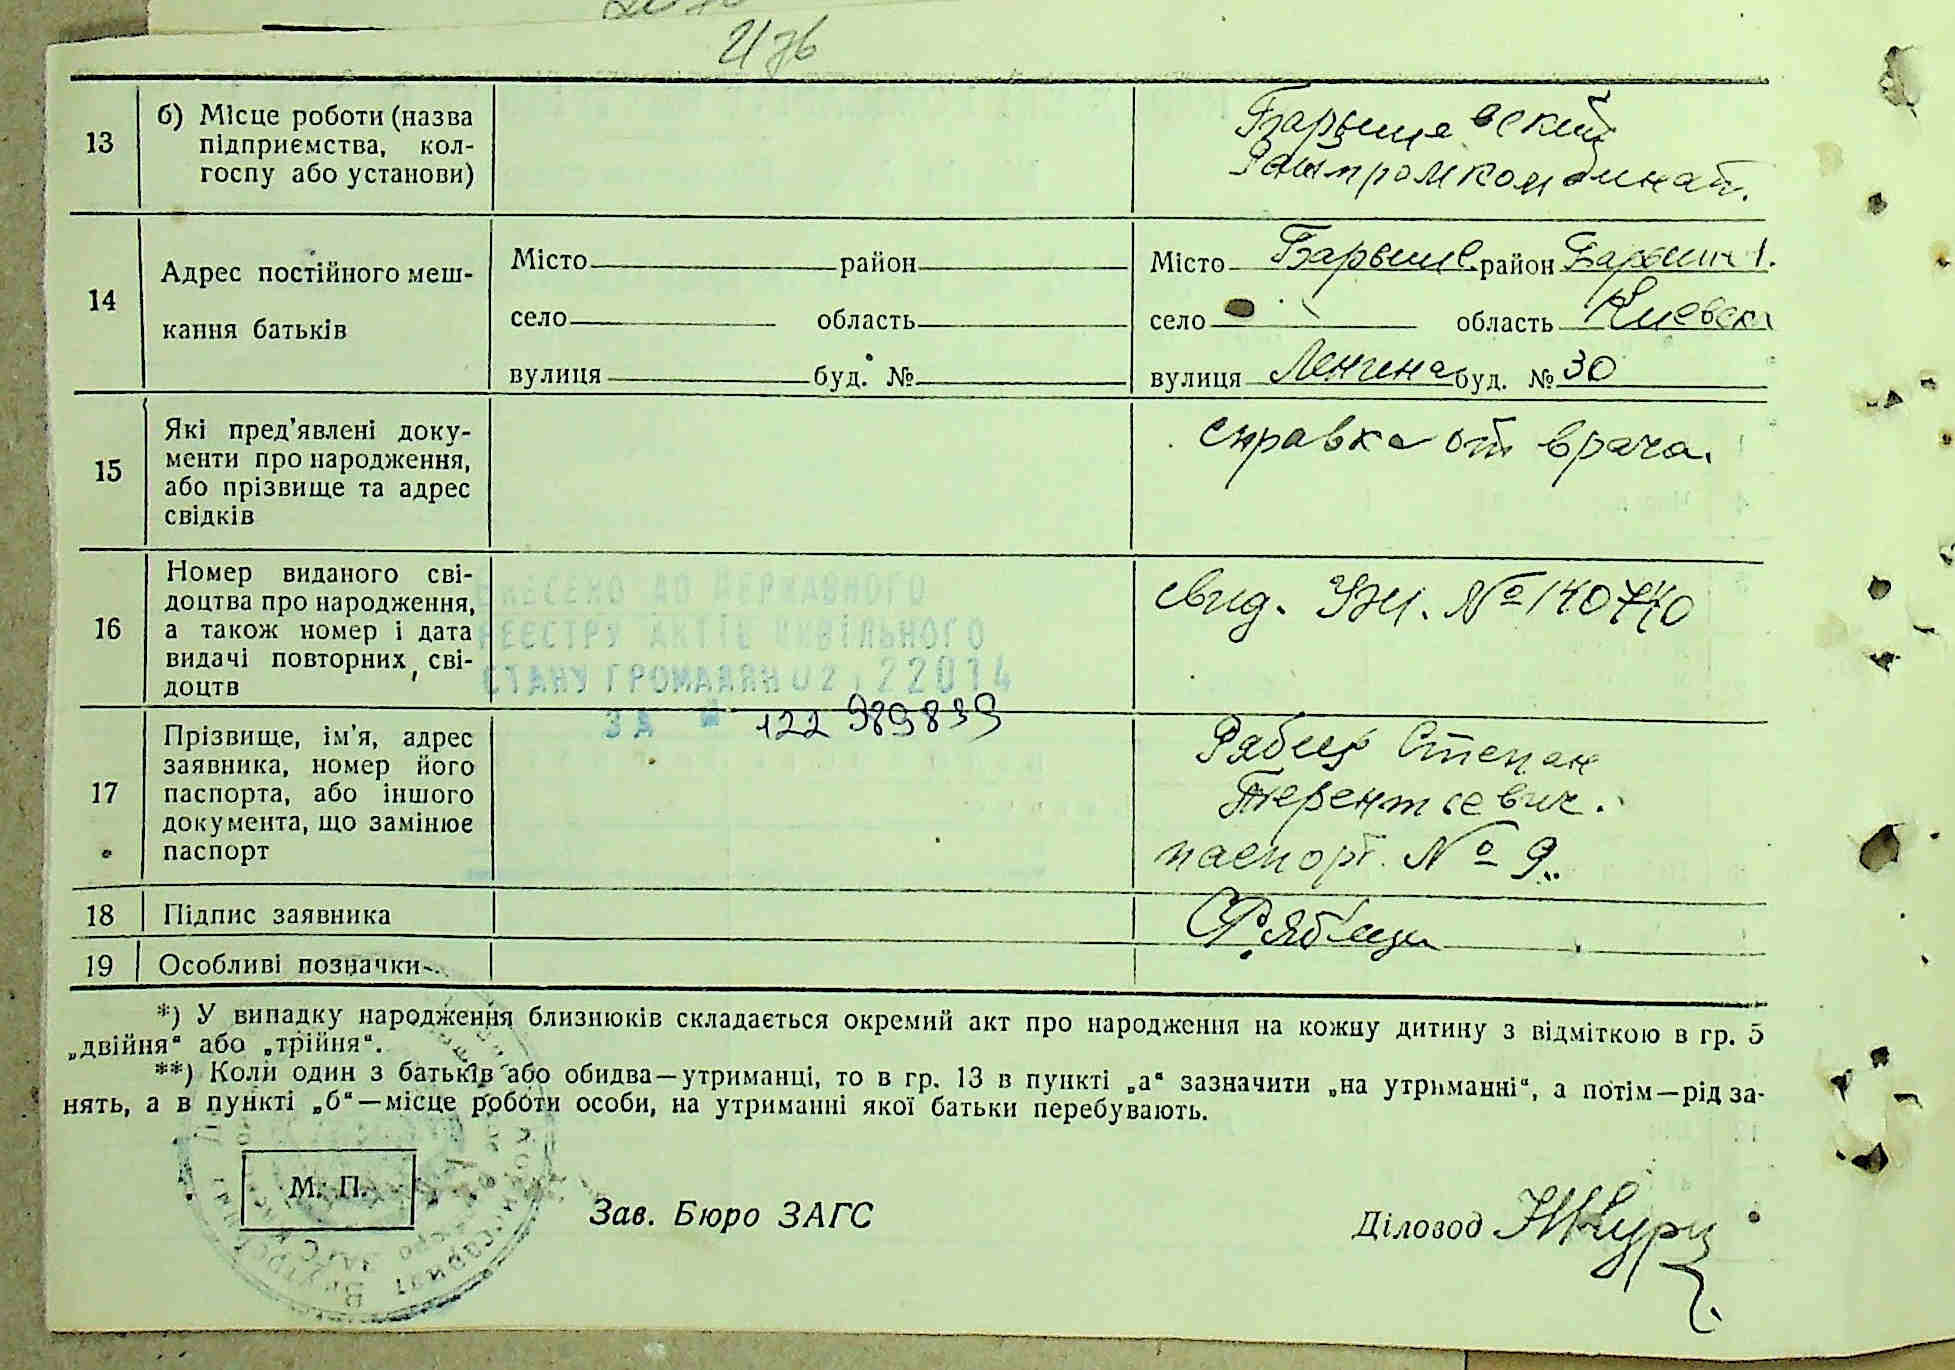 2176
13 б) Місце роботи (назва
підприємства, кол-
госпу або установи)
Барышевский
Райпромкомбинат.
14 Адрес постійного меш-
кання батьків
Місто район
село область
вулиця буд. №
Місто Барыше. район Барыш
село область Киевск
вулиця Ленина буд. № 30
15 Які пред'явлені доку-
менти про народження,
або прізвище та адрес
свідків
справка от врача.
16 Номер виданого сві-
доцтва про народження,
а також номер і дата
видачі повторних сві-
доцтв
ВНЕСЕНО ДО ДЕРЖАВНОГО
РЕЄСТРУ АКТІВ ЦИВІЛЬНОГО
СТАНУ ГРОМАДЯН 02 22014
ЗА № 122 989839
свид. УЖ. №
17 Прізвище, ім'я, адрес
заявника, номер його
паспорта, або іншого
документа, що замінює
паспорт
Степан
Терентьевич.
паспорт. № 9..
18 Підпис заявника
19 Особливі позначки
*) У випадку народження близнюків складається окремий акт про народження на кожну дитину з відміткою в гр. 5
„двійня“ або „трійня“.
**) Коли один з батьків або обидва—утриманці, то в гр. 13 в пункті „а“ зазначити „на утриманні“, а потім—рід за-
нять, а в пункті „б“—місце роботи особи, на утриманні якої батьки перебувають.
М. П.
Зав. Бюро ЗАГС
Діловод